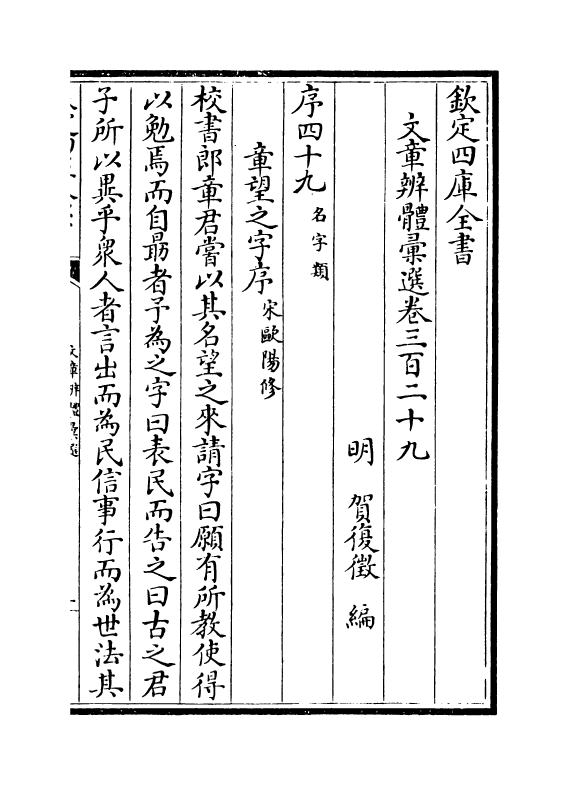 欽定四庫全書
文章辨體彙選卷三百二十九
明 賀復徵 編
序四十九 名字類
章望之字序 宋歐陽修
校書郎章君嘗以其名望之來請字曰願有所教使得
以勉焉而自朂者予為之字曰表民而告之曰古之君
子所以異乎衆人者言出而為民信事行而為世法其